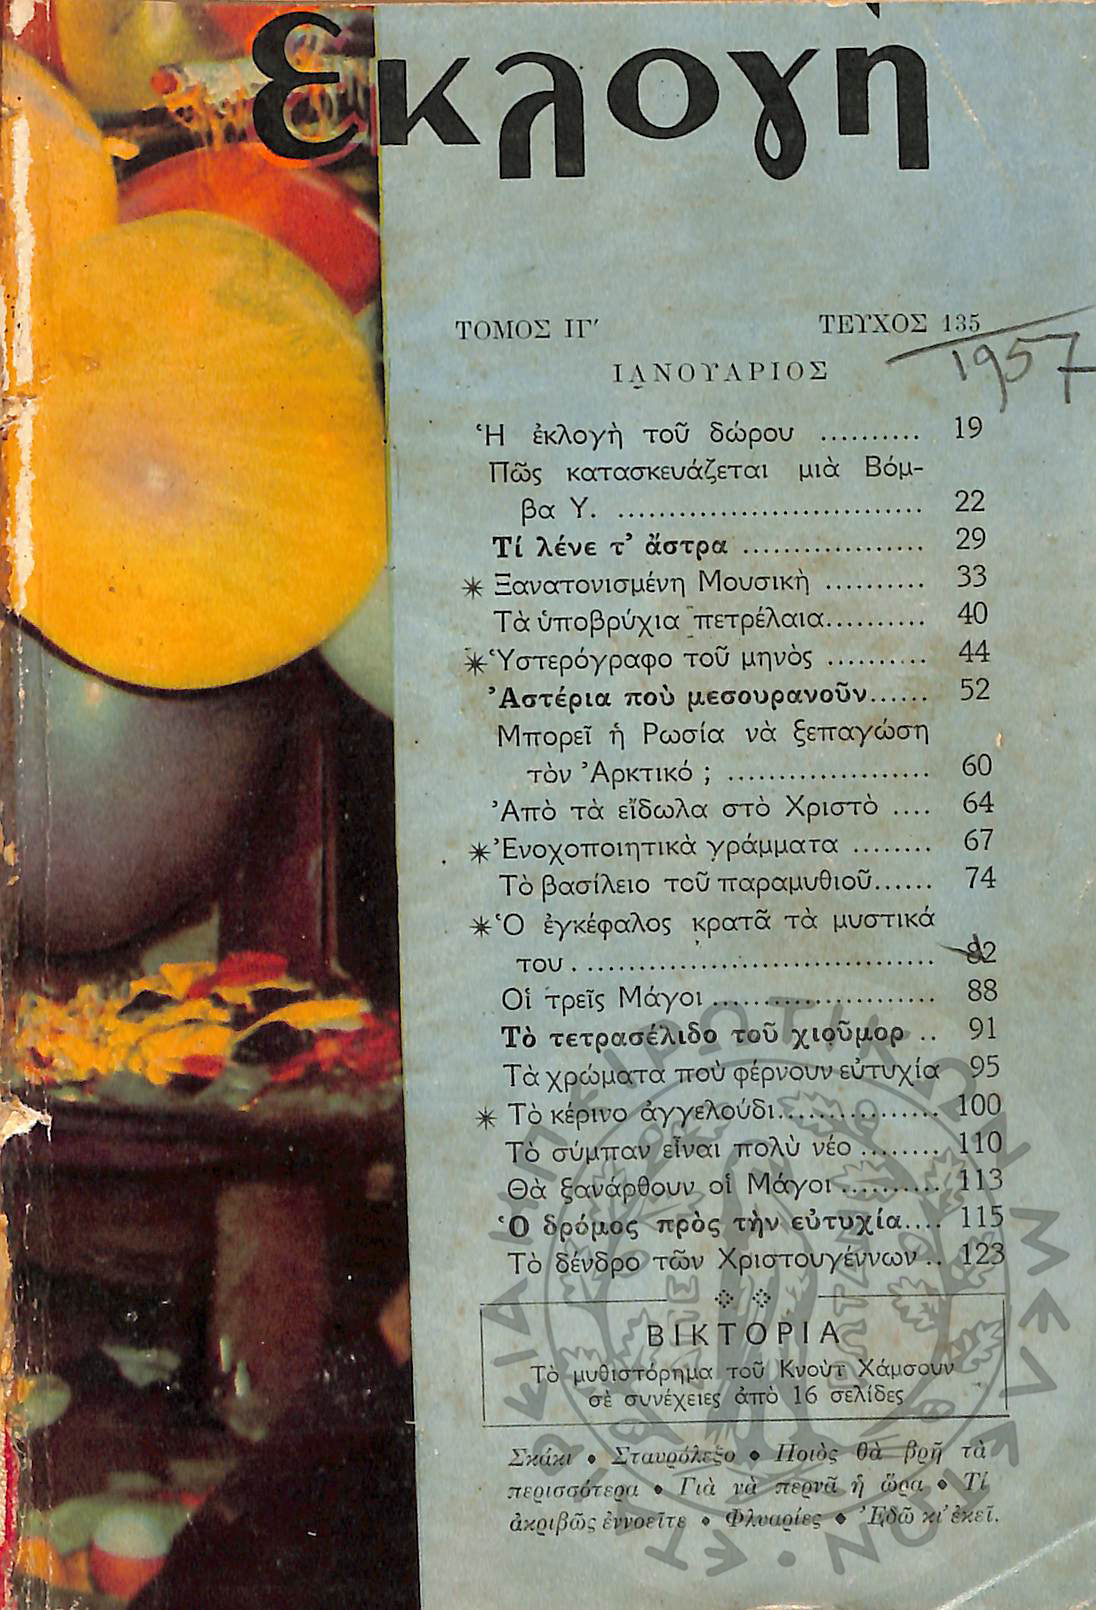 Εκλογή
ΤΟΜΟΣ ΙΓ′ ΤΕΥΧΟΣ 135
1957
ΙΑΝΟΥΑΡΙΟΣ
Ἡ ἐκλογὴ τοῦ δώρου .......... 19
Πῶς κατασκευάζεται μιὰ Βόμ-
βα Υ. .............................. 22
Τί λένε τ' ἄστρα .................. 29
✴ Ξανατονισμένη Μουσικὴ .......... 33
Τὰ ὑποβρύχια πετρέλαια.......... 40
✴ Ὑστερόγραφο τοῦ μηνὸς .......... 44
Ἀστέρια ποὺ μεσουρανοῦν...... 52
Μπορεῖ ἡ Ρωσία νὰ ξεπαγώση
τὸν Ἀρκτικό ; .................... 60
Ἀπὸ τὰ εἴδωλα στὸ Χριστὸ .... 64
✴ Ἐνοχοποιητικὰ γράμματα ........ 67
Τὸ βασίλειο τοῦ παραμυθιοῦ...... 74
✴ Ὁ ἐγκέφαλος κρατᾶ τὰ μυστικά
του .................................. 82
Οἱ τρεῖς Μάγοι ...................... 88
Τὸ τετρασέλιδο τοῦ χιοῦμορ .. 91
Τὰ χρώματα ποὺ φέρνουν εὐτυχία 95
✴ Τὸ κέρινο ἀγγελούδι................ 100
Τὸ σύμπαν εἶναι πολὺ νέο ........ 110
Θὰ ξανάρθουν οἱ Μάγοι .......... 113
Ὁ δρόμος πρὸς τὴν εὐτυχία.... 115
Τὸ δένδρο τῶν Χριστουγέννων .. 123
ΒΙΚΤΟΡΙΑ
Τὸ μυθιστόρημα τοῦ Κνοὺτ Χάμσουν
σὲ συνέχειες ἀπὸ 16 σελίδες
Σκάκι ◆ Σταυρόλεξο ◆ Ποιὸς θὰ βρῆ τὰ
περισσότερα ◆ Γιὰ νὰ περνᾶ ἡ ὥρα ◆ Τί
ἀκριβῶς ἐννοεῖτε ◆ Φλυαρίες ◆ Ἐδῶ κι' ἐκεῖ.